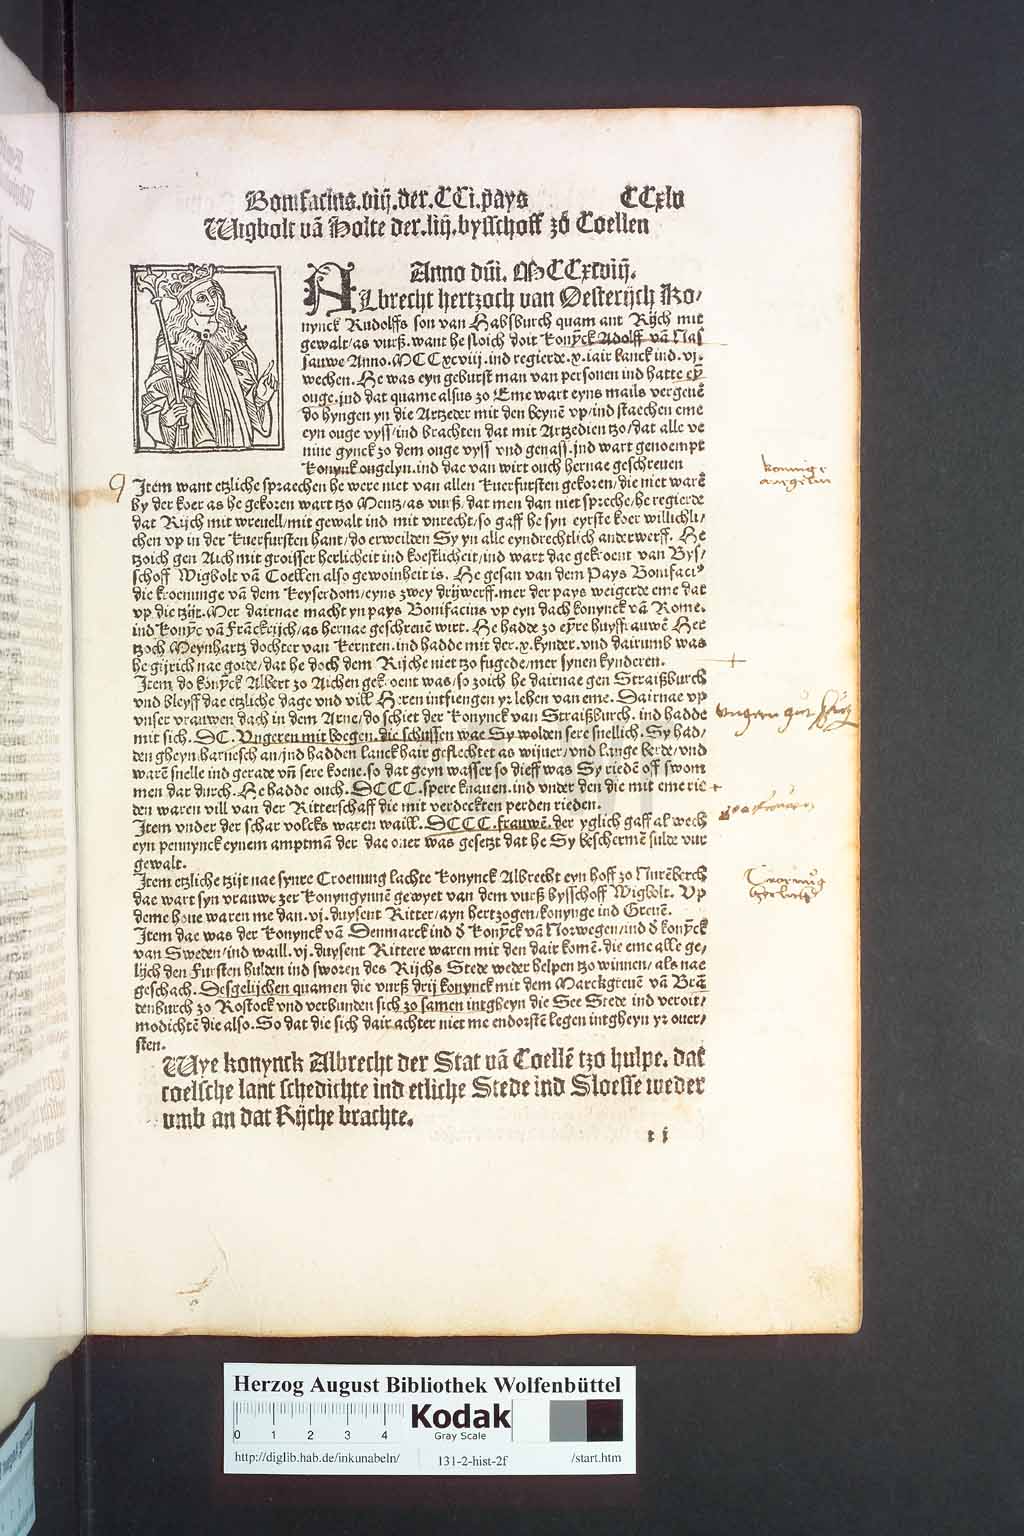 Bonifacius.viij.der.CCi.pays CCxlv
Wigbolt vā Holte der.liij.bysschoff zo Coellen
Anno dñi. MCCxcviij.
ALbrecht hertzoch van Oesterijch Ko/
nynck Rudolffs son van Habsburch quam ant Rijch mit
gewalt/as vurß. want he sloich doit konyck Adolff vā Nas
sauwe Anno.MCCxcviij.ind regierde.x.iair lanck ind.vj.
wechen. He was eyn geburst man van personen ind hatte ey
ouge.ind dat quame alsus zo Eme wart eyns mails vergeuē
do hyngen yn die Artzeder mit den beynē vp/ind staechen eme
eyn ouge vyss/ind brachten dat mit Artzedien tzo/dat alle ve
nine gynck zo dem ouge vyss vnd genass.ind wart genoempt
konynk ougelyn.ind dae van wirt ouch hernae geschreuen
Item want etzliche spraechen he were niet van allen kuerfursten gekoren/die niet warē
by der koer as he gekoren wart tzo Mentz/as vurß.dat men dan niet spreche/he regierde
dat Rijch mit wreuell/mit gewalt ind mit vnrecht/so gaff he syn eyrste koer willichli/
chen vp in der kuerfursten hant/do erweilden Sy yn alle eyndrechtlich anderwerff. He
tzoich gen Aich mit groisser herlicheit ind koestlicheit/ind wart dae gekroent van Bys/
schoff Wigbolt vā Coellen also gewoinheit is. He gesan van dem Pays Bonifaci⁹
die kroenunge vā dem keyserdom/eyns zwey drijwerff.mer der pays weigerde eme dat
vp die tzijt. Mer dairnae macht yn pays Bonifacius vp eyn dach konynck vā Rome.
ind konyc vā Franckrijch/as hernae geschreuē wirt. He hadde zo eyre huyffrauwē Her
tzoch Meynhartz dochter van kernten.ind hadde mit der.x.kynder.vnd dairumb was
he gijrich nae goide/dat he doch dem Rijche niet tzo fugede/mer synen kynderen.
Item do konyck Albert zo Aichen gekroent was/so zoich he dairnae gen Straißburch
vnd bleyff dae etzliche dage vnd vill Heren intfiengen yr lehen van eme. Dairnae vp
vnser vrauwen dach in dem Arne/do schiet der konynck van Straißburch. ind hadde
mit sich. DC. Vngeren mit boegen.die schussen wae Sy wolden sere snellich. Sy had/
den gheyn harnesch an/ind hadden lanck hair geflechtet as wijuer/vnd lange berde/vnd
warē snelle ind gerade vñ sere koene.so dat geyn wasser so dieff was Sy riedē off swom
men dar durch. He hadde ouch. DCCC.spere knauen.ind vnder den die mit eme rie
den waren vill van der Ritterschaff die mit verdeckten perden rieden.
Item vnder der schar volcks waren waill. DCCC.frauwē.der yglich gaff al wech
eyn pennynck eynem amptmā der dae ouer was gesetzt dat he Sy beschermē sulde vur
gewalt.
Item etzliche tzijt nae synre Croenung lachte konynck Albrecht eyn hoff zo Nurēberch
dae wart syn vrauwe zer konyngynnē gewyet van dem vurß bysschoff Wigbolt. Vp
deme houe waren me dan.vj.duysent Ritter/ayn hertzogen/konynge ind Greuē.
Item dae was der konynck vā Denmarck ind d konyck vā Norwegen/ind d konyck
van Sweden/ind waill.vj.duysent Rittere waren mit den dair komē.die eme alle ge/
lijch den Fursten hulden ind sworen des Rijchs Stede weder helpen tzo winnen/als nae
geschach. Desgelijchen quamen die vurß drij konynck mit dem Marckgreuē van Brā
denburch zo Rostock vnd verbunden sich zo samen intgheyn die See Stede ind veroit/
modichtē die also. So dat die sich dair achter niet me endorstē legen intgheyn yr ouer/
sten.
Wye konynck Albrecht der Stat vā Coellē tzo hulpe. dat
coelsche lant schedichte ind etliche Stede ind Sloesse weder
umb an dat Rijche brachte.
t j
Herzog August Bibliothek Wolfenbüttel
0 1 2 3 4
Kodak
Gray Scale
http://diglib.hab.de/inkunabeln/ 131-2-hist-2f /start.htm